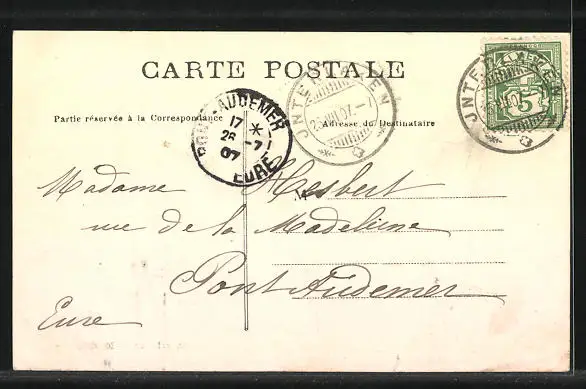 CARTE POSTALE
Partie réservée à la Correspondance
Adresse du Destinataire
PONT-AUDEMER
17 *
26 -7
07
EURE
INTERLAKEN
25.VII.07.-7
INTERLAKEN
5
Madame Hesbert
rue de la Madeleine
Pont Audemer
Eure